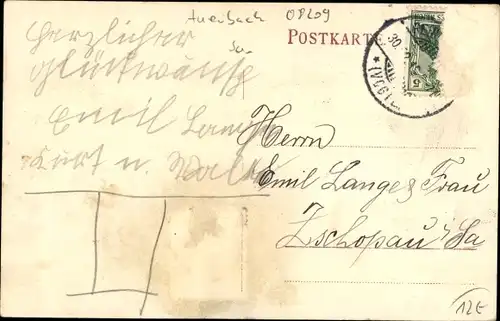 Auerbach 08209
POSTKARTE
Herzlicher
Glückwünsche
Emil Lange
Kurt u.
30.
5
Herrn
Emil Lange & Frau
Zschopau i/Sa
12E